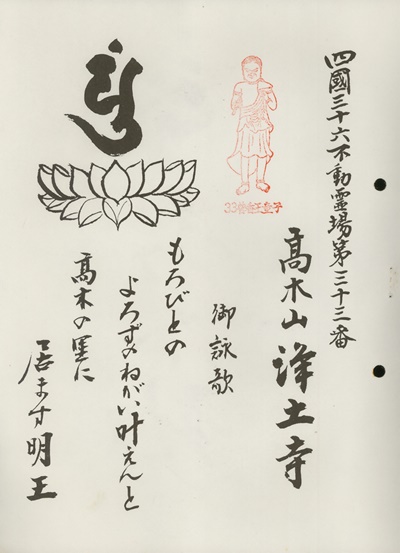 四國三十六不動霊場第三十三番
髙木山 浄土寺
御詠歌
もろびとの
よろずのねがい叶えんと
髙木の里に
居ます明王